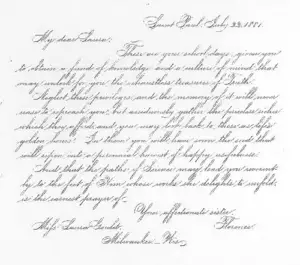 Saint Paul, July 23, 1881.
My dear Laura:
These are your school days, given you
to obtain a fund of knowledge and a culture of mind, that
may unlock for you the countless treasures of Truth.
Neglect these privileges and the memory of it will never
cease to reproach you, but assiduously gather the precious riches
which they afford, and you may look back to these as life's
golden hours. In them you will have sown the seed that
will ripen into a perennial harvest of happy usefulness.
And that the paths of Science may lead you reverently
to the feet of Him whose works she delights to unfold,
is the earnest prayer of
Your affectionate sister,
Florence.
Miss Laura
Milwaukee, Wis.